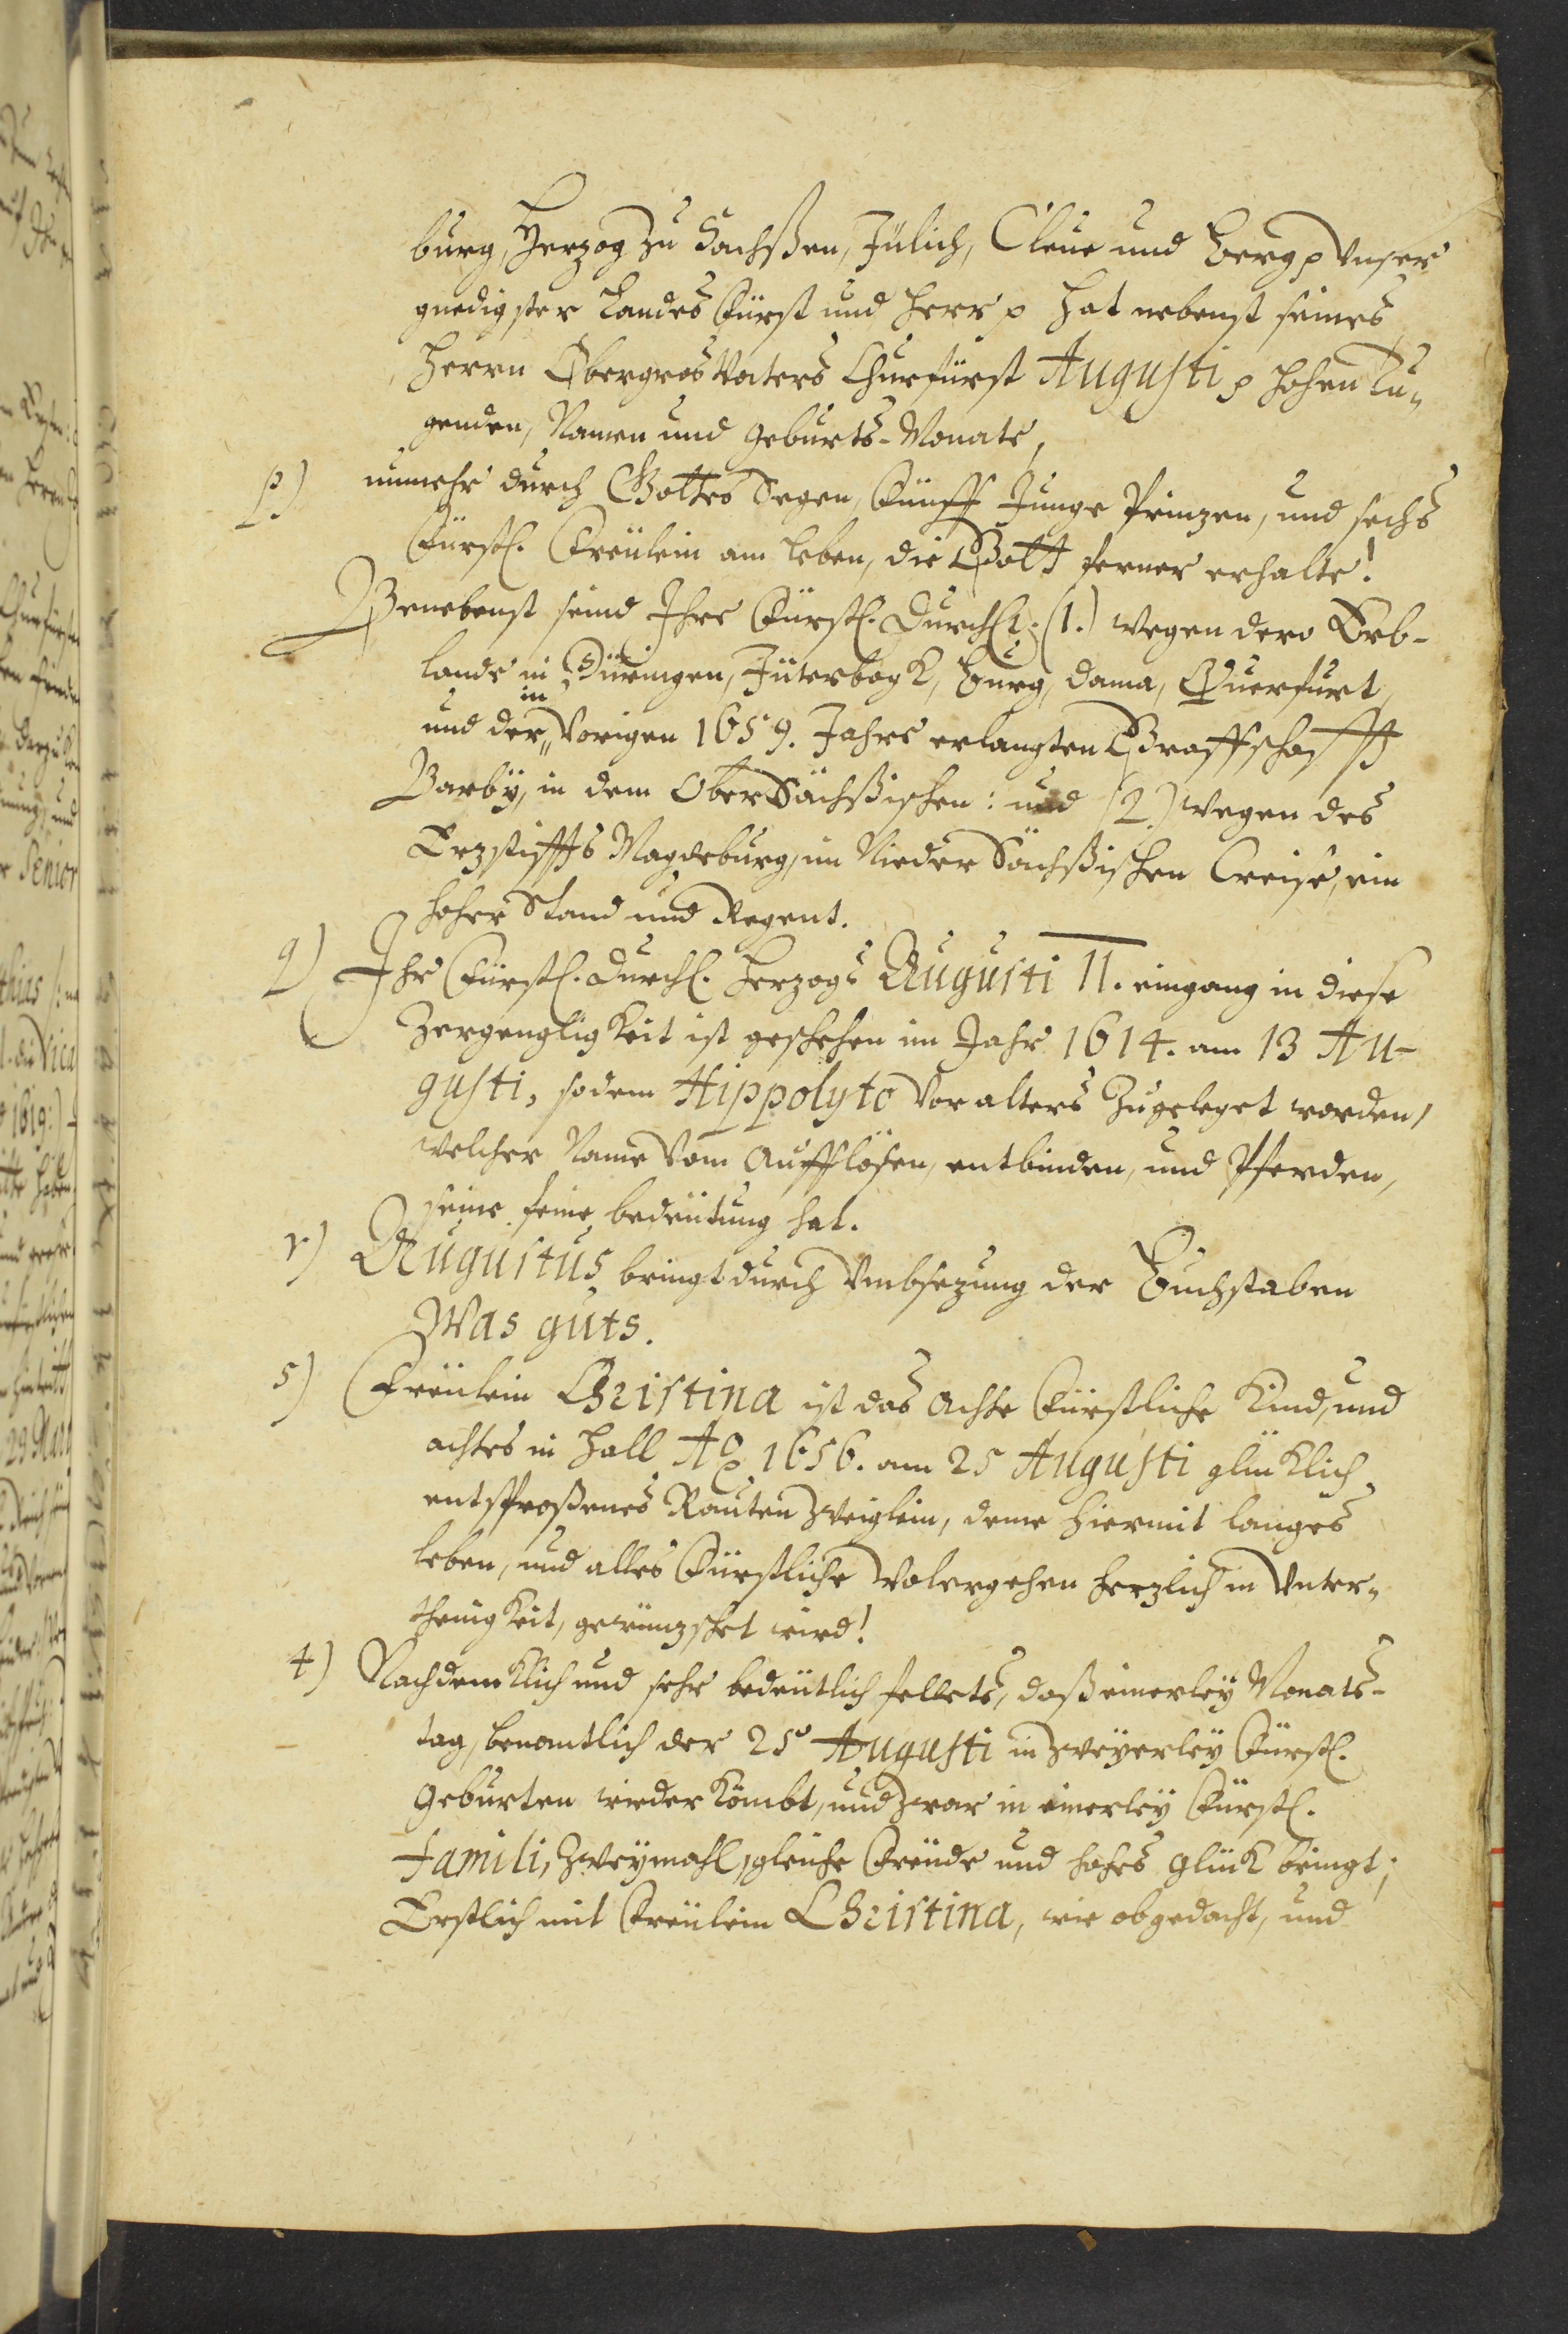 burg, Herzog zu Sachßen, Jülich, Cleve und Berg p Unser
gnedigster Landes Fürst und Herr p hat nebenst seines
Herrn Obergros Vaters Churfürst Augusti p hohen Tu-
genden, Namen und Geburts-Monats,
p) nunmehr durch Gottes Segen, Fünff Junge Prinzen, und sechs
Fürstl. Freülein am leben, die Gott ferner erhalte!
Benebenst seind Ihre Fürstl. Durchl. (1.) wegen dero Erb-
lande in Düringen, Jüterbogk, Burg, Dama, Querfurt,
in
und der„ Vorigen 1659. Jahrs erlangten Graffschafft
Barbÿ, in dem Ober Sächßischen: und (2.) wegen des
Erzstiffts Magdeburg, im Nieder Sächßischen Creise, ein
hoher Stand und Regent.
q) Ihr Fürstl. Durchl. Herzogs Augusti II. eingang in diese
Zergengligkeit ist geschehen im Jahr 1614. am 13 Au-
gusti, so dem Hippolyto vor alters zugeleget worden,
welcher Name vom Aufflösen, entbinden, und Pferden,
seine feine bedeütung hat.
r) Augustus bringt durch Umbsezung der Buchstaben
Was guts.
s) Freülein Christina ist das Achte Fürstliche Kind, und
achtes in Hall Ao 1656. am 25 Augusti glücklich
entsproßenes Rauten Zweiglein, deme hiermit langes
leben, und alles Fürstliche Wolergehen herzlich in Unter-
thenigkeit, gewünzschet wird!
t) Nachdencklich und sehr bedeütlich fellets, daß einerleÿ Monats-
tag, benamtlich der 25 Augusti in zweÿerleÿ Fürstl.
Geburten wieder Kömbt, und zwar in einerleÿ Fürstl.
Famili, zweÿmahl, gleiche Freüde und hohes glück bringt;
Erstlich mit Freülein Christina, wie obgedacht, und